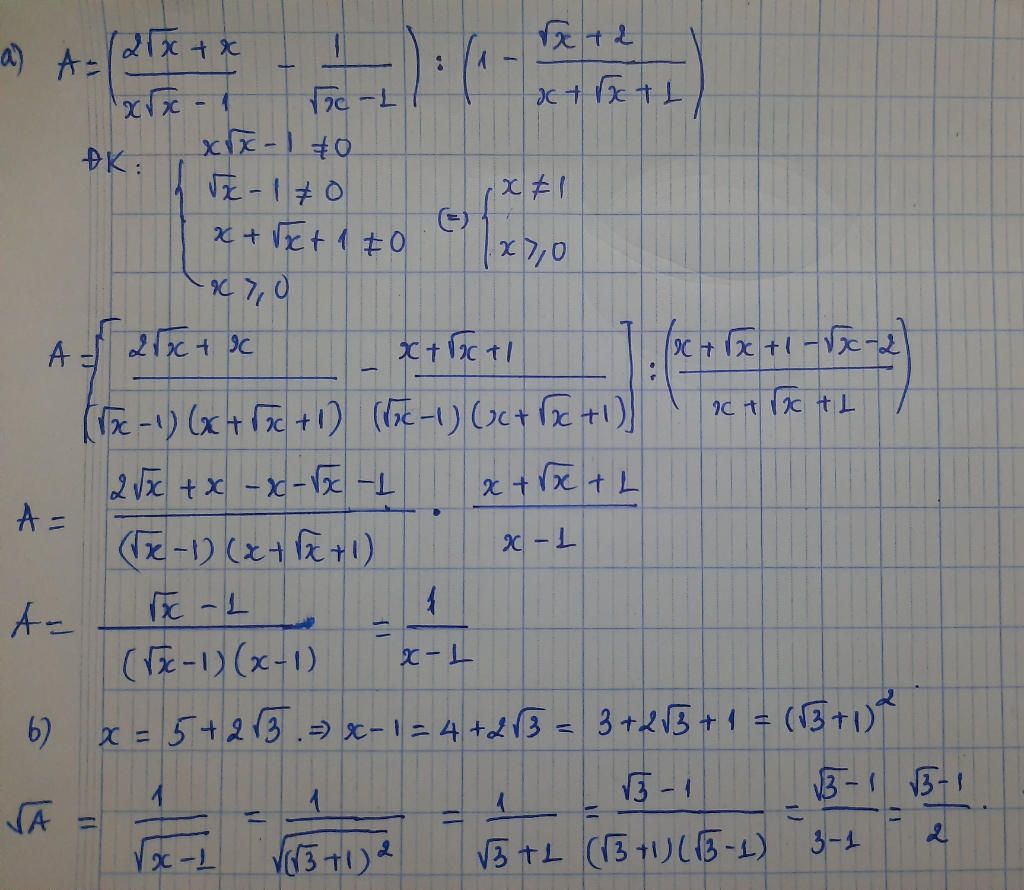 a) A = ( (2√x + x)/(x√x - 1) - 1/(√x - 1) ) : ( 1 - (√x + 2)/(x + √x + 1) )
ĐK: { x√x - 1 ≠ 0
√x - 1 ≠ 0
x + √x + 1 ≠ 0
x ≥ 0
(=) { x ≠ 1
x ≥ 0
A = [ (2√x + x)/((√x - 1)(x + √x + 1)) - (x + √x + 1)/((√x - 1)(x + √x + 1)) ] : ( (x + √x + 1 - √x - 2)/(x + √x + 1) )
A = (2√x + x - x - √x - 1)/((√x - 1)(x + √x + 1)) . (x + √x + 1)/(x - 1)
A = (√x - 1)/((√x - 1)(x - 1)) = 1/(x - 1)
b) x = 5 + 2√3 . ⇒ x - 1 = 4 + 2√3 = 3 + 2√3 + 1 = (√3 + 1)²
√A = 1/√(x - 1) = 1/√((√3 + 1)²) = 1/(√3 + 1) = (√3 - 1)/((√3 + 1)(√3 - 1)) = (√3 - 1)/(3 - 1) = (√3 - 1)/2 .